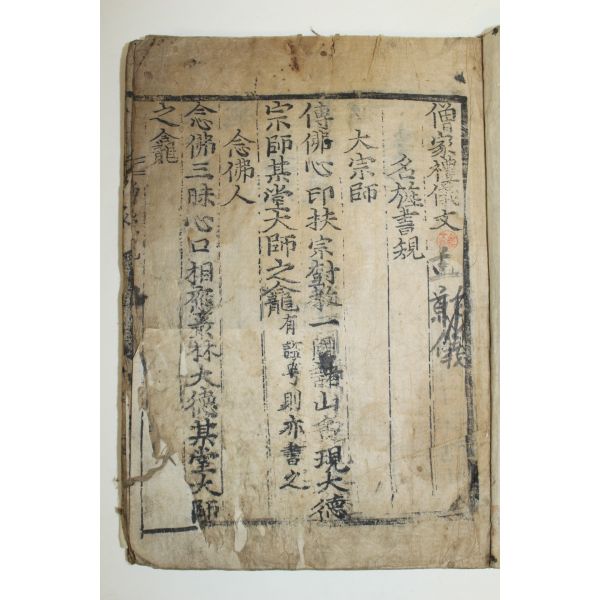 僧家禮儀文
名旌書規
大宗師
傳佛心印扶宗樹教一國諸山 現大德
宗師某堂大師之龕 有諡号則亦書之
念佛人
念佛三昧心口相應叢林大德某堂大師
之龕